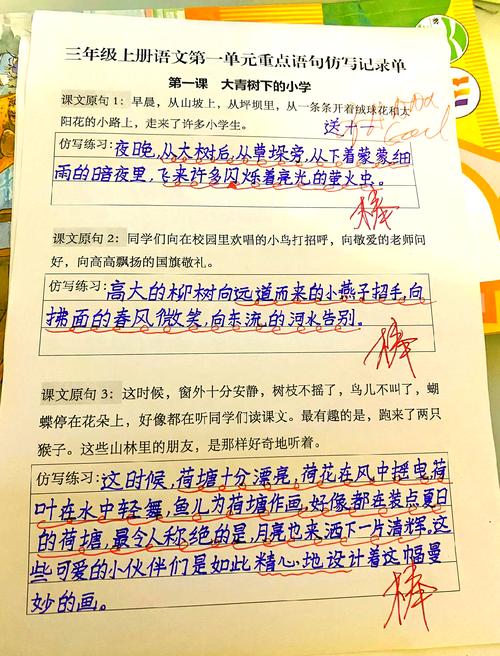 三年级上册语文第一单元重点语句仿写记录单
第一课 大青树下的小学
课文原句 1：早晨，从山坡上，从坪坝里，从一条条开着绒球花和太
阳花的小路上，走来了许多小学生。
仿写练习：夜晚，从大树后，从草垛旁，从下着蒙蒙细
雨的暗夜里，飞来许多闪烁着亮光的萤火虫。
棒
课文原句 2：同学们向在校园里欢唱的小鸟打招呼，向敬爱的老师问
好，向高高飘扬的国旗敬礼。
仿写练习：高大的柳树向远道而来的小燕子招手，向
拂面的春风微笑，向东流的河水告别。
棒
课文原句 3：这时候，窗外十分安静，树枝不摇了，鸟儿不叫了，蝴
蝶停在花朵上，好像都在听同学们读课文。最有趣的是，跑来了两只
猴子。这些山林里的朋友，是那样好奇地听着。
仿写练习：这时候，荷塘十分漂亮，荷花在风中摇曳，荷
叶在水中轻舞，鱼儿为荷塘作画，好像都在装点夏日
的荷塘，最令人称绝的是，月亮也来洒下一片清辉。这
些可爱的小伙伴们是如此精心地设计着这幅曼
妙的画。
棒